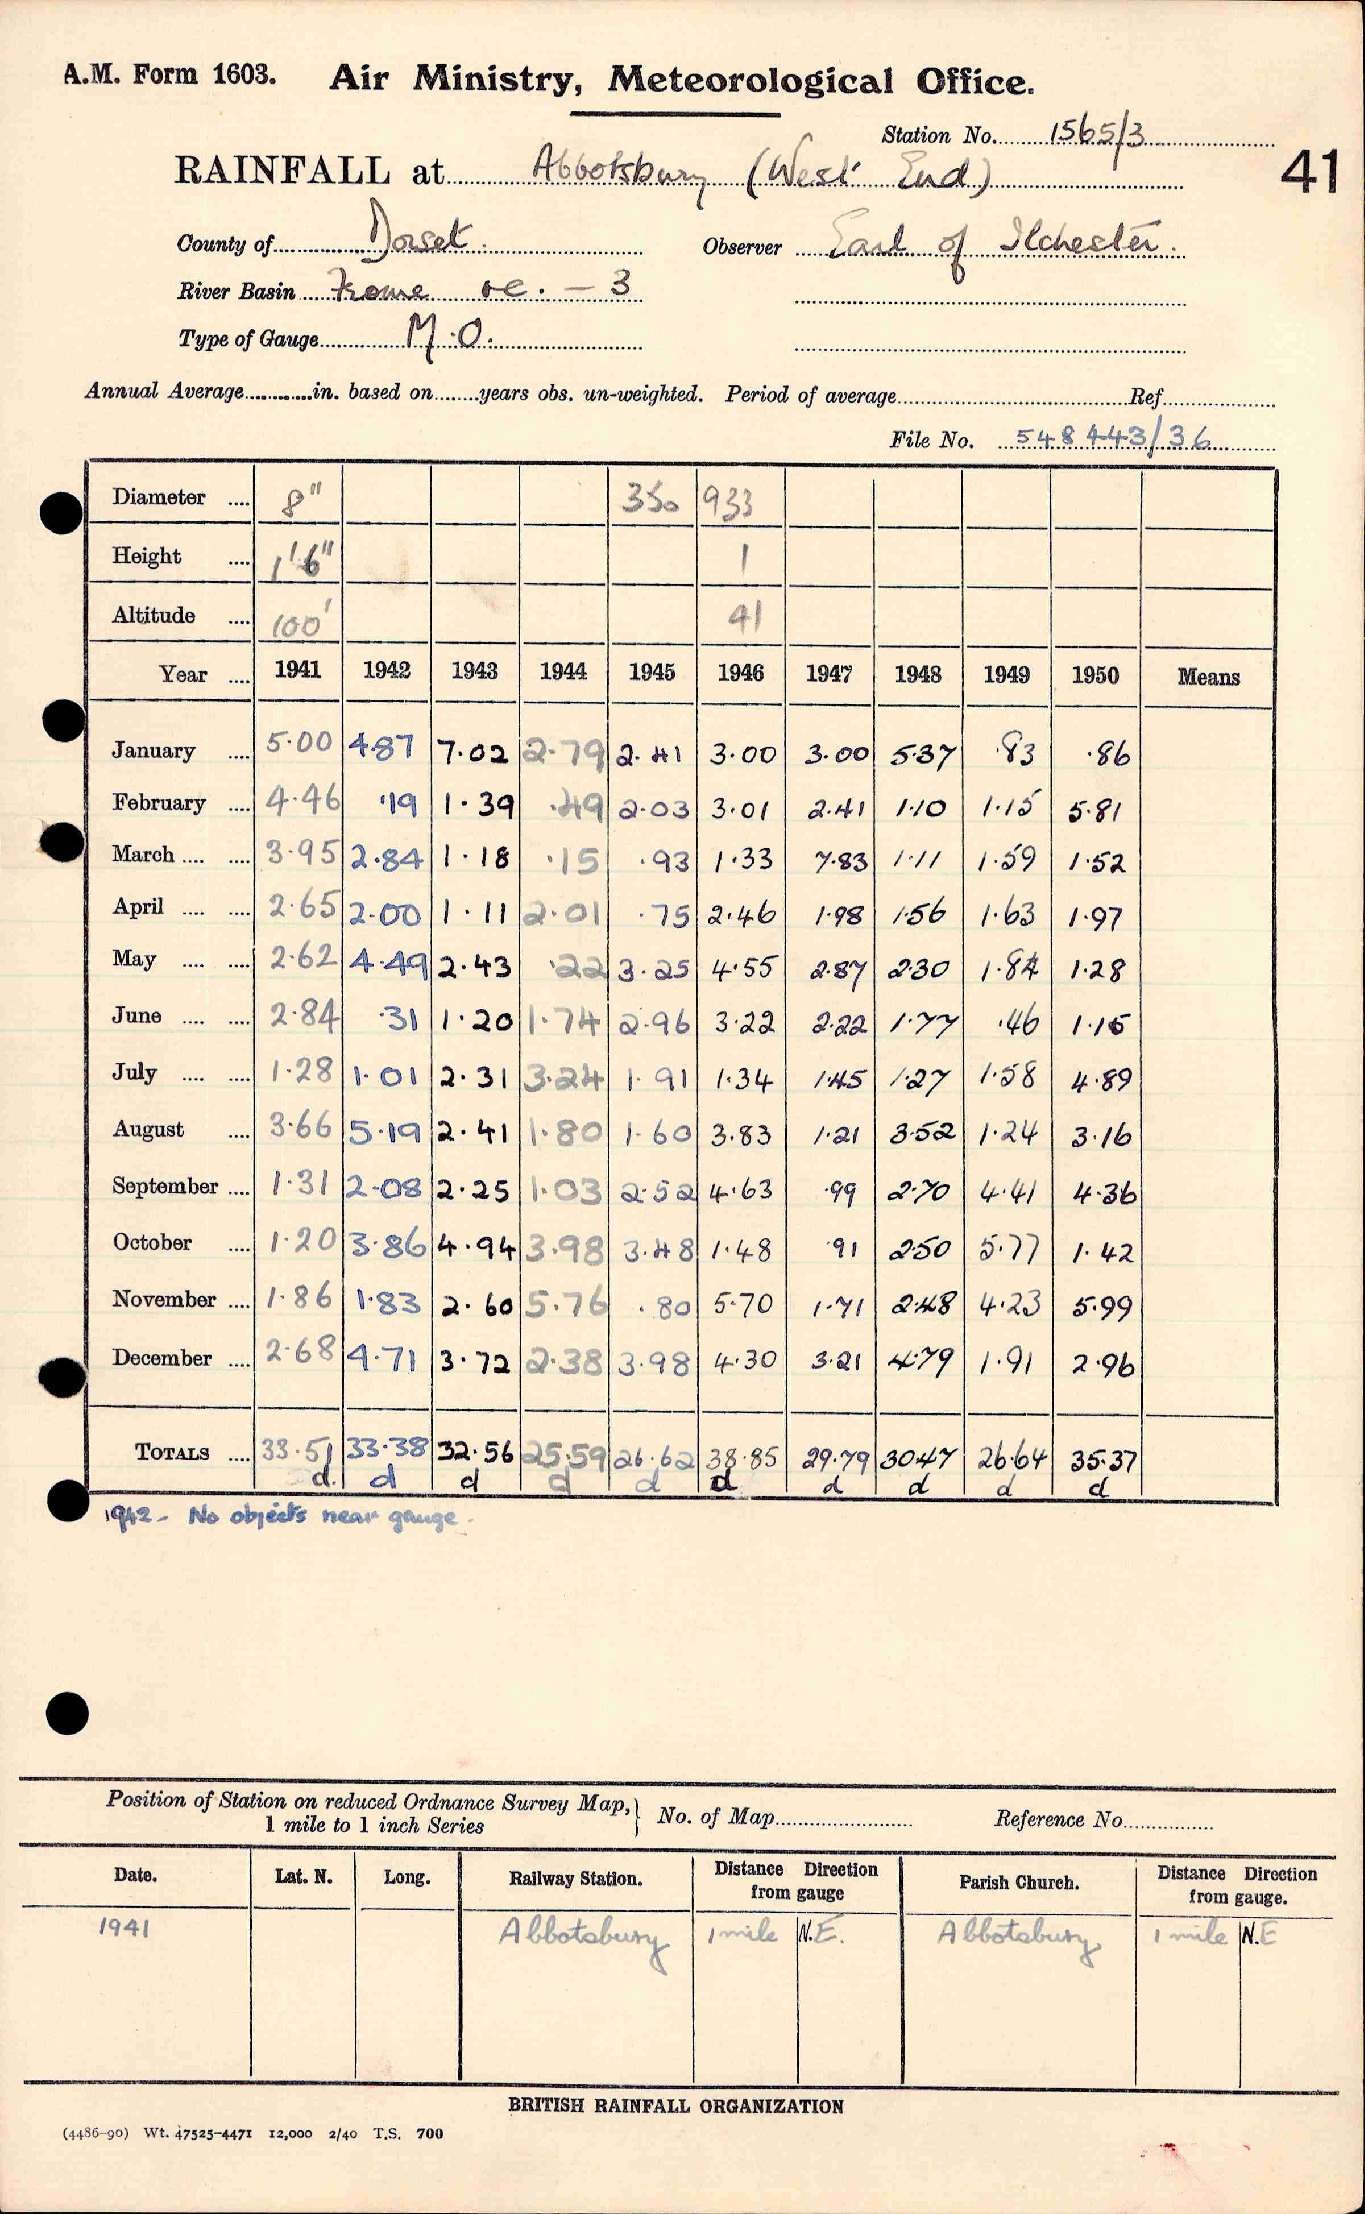 A.M. Form 1603. Air Ministry, Meteorological Office.
Station No. 1565/3
RAINFALL at Abbotsbury (West End) 41
County of Dorset. Observer Earl of Ilchester.
River Basin Frome &c. – 3
Type of Gauge M.O.
Annual Average in. based on years obs. un-weighted. Period of average Ref.
File No. 548443/36
Diameter 8" 350 933
Height 1'6" 1
Altitude 100' 41
Year 1941 1942 1943 1944 1945 1946 1947 1948 1949 1950 Means
January 5.00 4.87 7.02 2.79 2.41 3.00 3.00 5.37 .83 .86
February 4.46 .19 1.39 .49 2.03 3.01 2.41 1.10 1.15 5.81
March 3.95 2.84 1.18 .15 .93 1.33 7.83 1.11 1.59 1.52
April 2.65 2.00 1.11 2.01 .75 2.46 1.98 1.56 1.63 1.97
May 2.62 4.49 2.43 .22 3.25 4.55 2.87 2.30 1.84 1.28
June 2.84 .31 1.20 1.74 2.96 3.22 2.22 1.77 .46 1.15
July 1.28 1.01 2.31 3.24 1.91 1.34 1.45 1.27 1.58 4.89
August 3.66 5.19 2.41 1.80 1.60 3.83 1.21 3.52 1.24 3.16
September 1.31 2.08 2.25 1.03 2.52 4.63 .99 2.70 4.41 4.36
October 1.20 3.86 4.94 3.98 3.48 1.48 .91 2.50 5.77 1.42
November 1.86 1.83 2.60 5.76 .80 5.70 1.71 2.48 4.23 5.99
December 2.68 4.71 3.72 2.38 3.98 4.30 3.21 4.79 1.91 2.96
TOTALS 33.51 33.38 32.56 25.59 26.62 38.85 29.79 30.47 26.64 35.37
d. d d d d d d d d d
1942 - No objects near gauge.
Position of Station on reduced Ordnance Survey Map, 1 mile to 1 inch Series } No. of Map Reference No.
Date. Lat. N. Long. Railway Station. Distance Direction from gauge Parish Church. Distance Direction from gauge.
1941 Abbotsbury 1 mile N.E. Abbotsbury 1 mile N.E
BRITISH RAINFALL ORGANIZATION
(4486-90) Wt. 47525-4471 12,000 2/40 T.S. 700